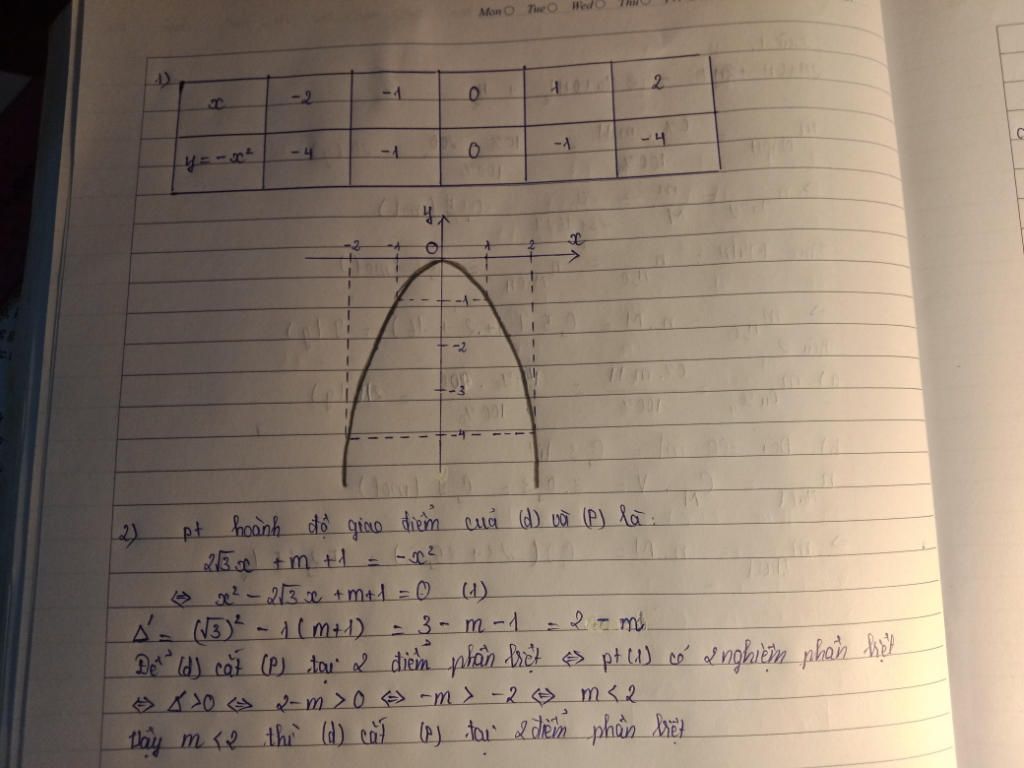 Mon Tue Wed Thu
1)
x -2 -1 0 1 2
y = -x² -4 -1 0 -1 -4
y
-2 -1 O 1 2 x
-1
-2
-3
-4
2) pt hoành độ giao điểm cuả (d) và (P) là:
2√3x + m + 1 = -x²
⇔ x² - 2√3x + m+1 = 0 (1)
Δ' = (√3)² - 1(m+1) = 3 - m - 1 = 2 - m
Để (d) cắt (P) tại 2 điểm phân biệt ⇔ pt(1) có 2 nghiệm phân biệt
⇔ Δ' >0 ⇔ 2-m > 0 ⇔ -m > -2 ⇔ m < 2
Vậy m < 2 thì (d) cắt (P) tại 2 điểm phân biệt